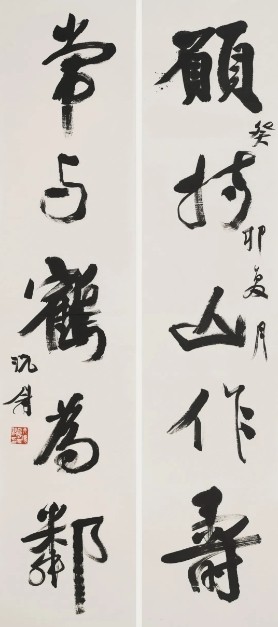 願持山作壽
癸卯夏月
常与鶴為鄰